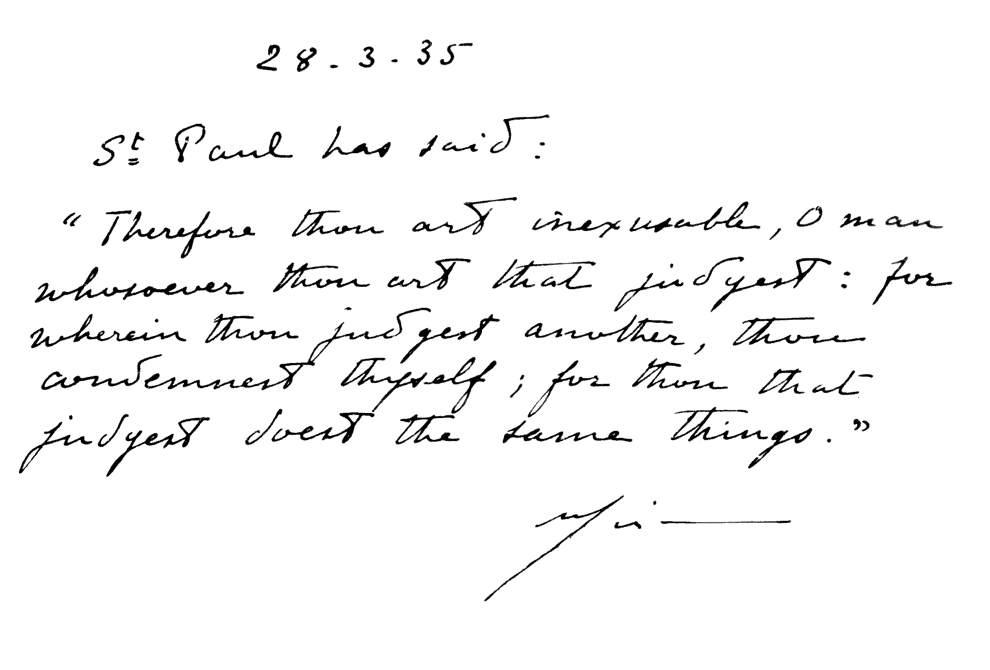 28.3.35
St Paul has said:
"Therefore thou art inexusable, O man
whosoever thou art that judgest: for
wherein thou judgest another, thou
condemnest thyself; for thou that
judgest doest the same things."